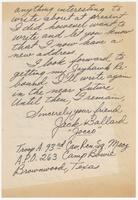 anything interesting to
write about at present
I did however want to
write and let you know
that I now have a
new address.
I look forward to
getting my Orphan's H
bound. I'll write again
in the near future
Until then, I remain,
Sincerely your friend
Jack Ballard
"Joeco"
Troop A 93rd Cav Rcn Sq Mecz
A.P.O. 263 Camp Bowie
Brownwood, Texas